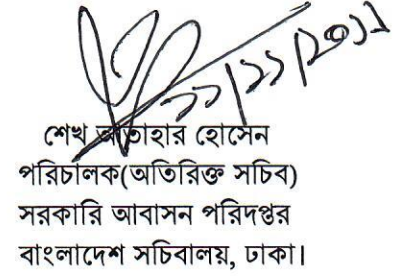 ১১/১১/২০১১
শেখ আতাহার হোসেন
পরিচালক(অতিরিক্ত সচিব)
সরকারি আবাসন পরিদপ্তর
বাংলাদেশ সচিবালয়, ঢাকা।